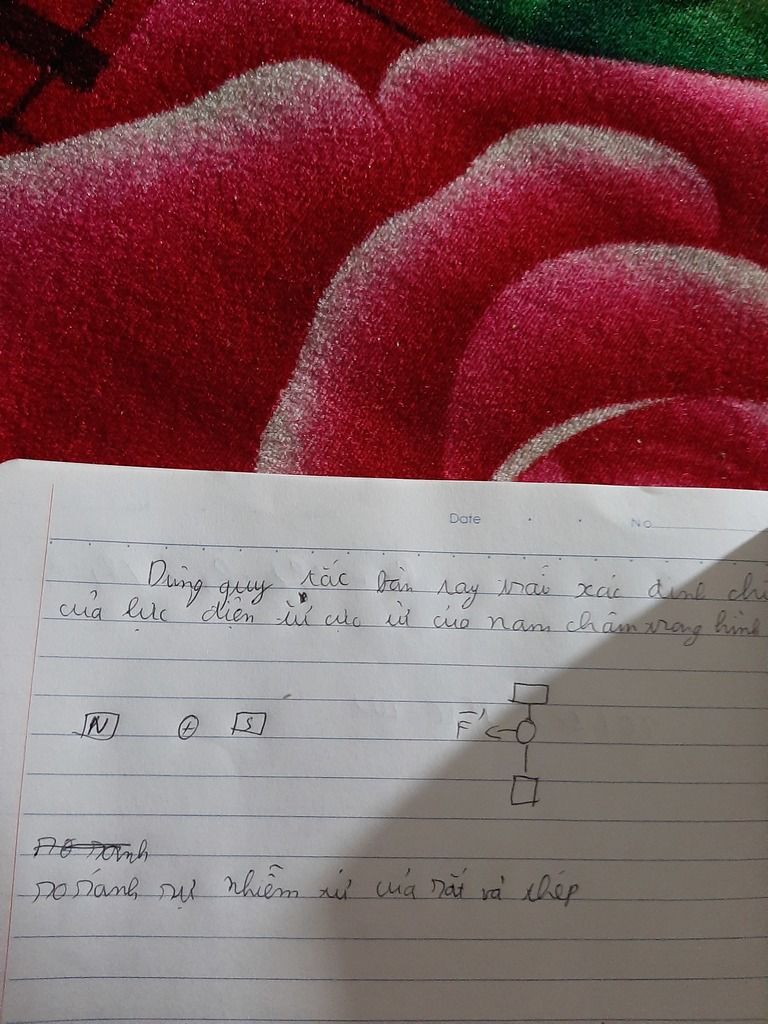 Date No
Dùng quy tắc bàn tay trái xác định chi
của lực điện từ cực từ của nam châm trong hình
N + S F
so sánh
so sánh sự nhiễm từ của sắt và thép